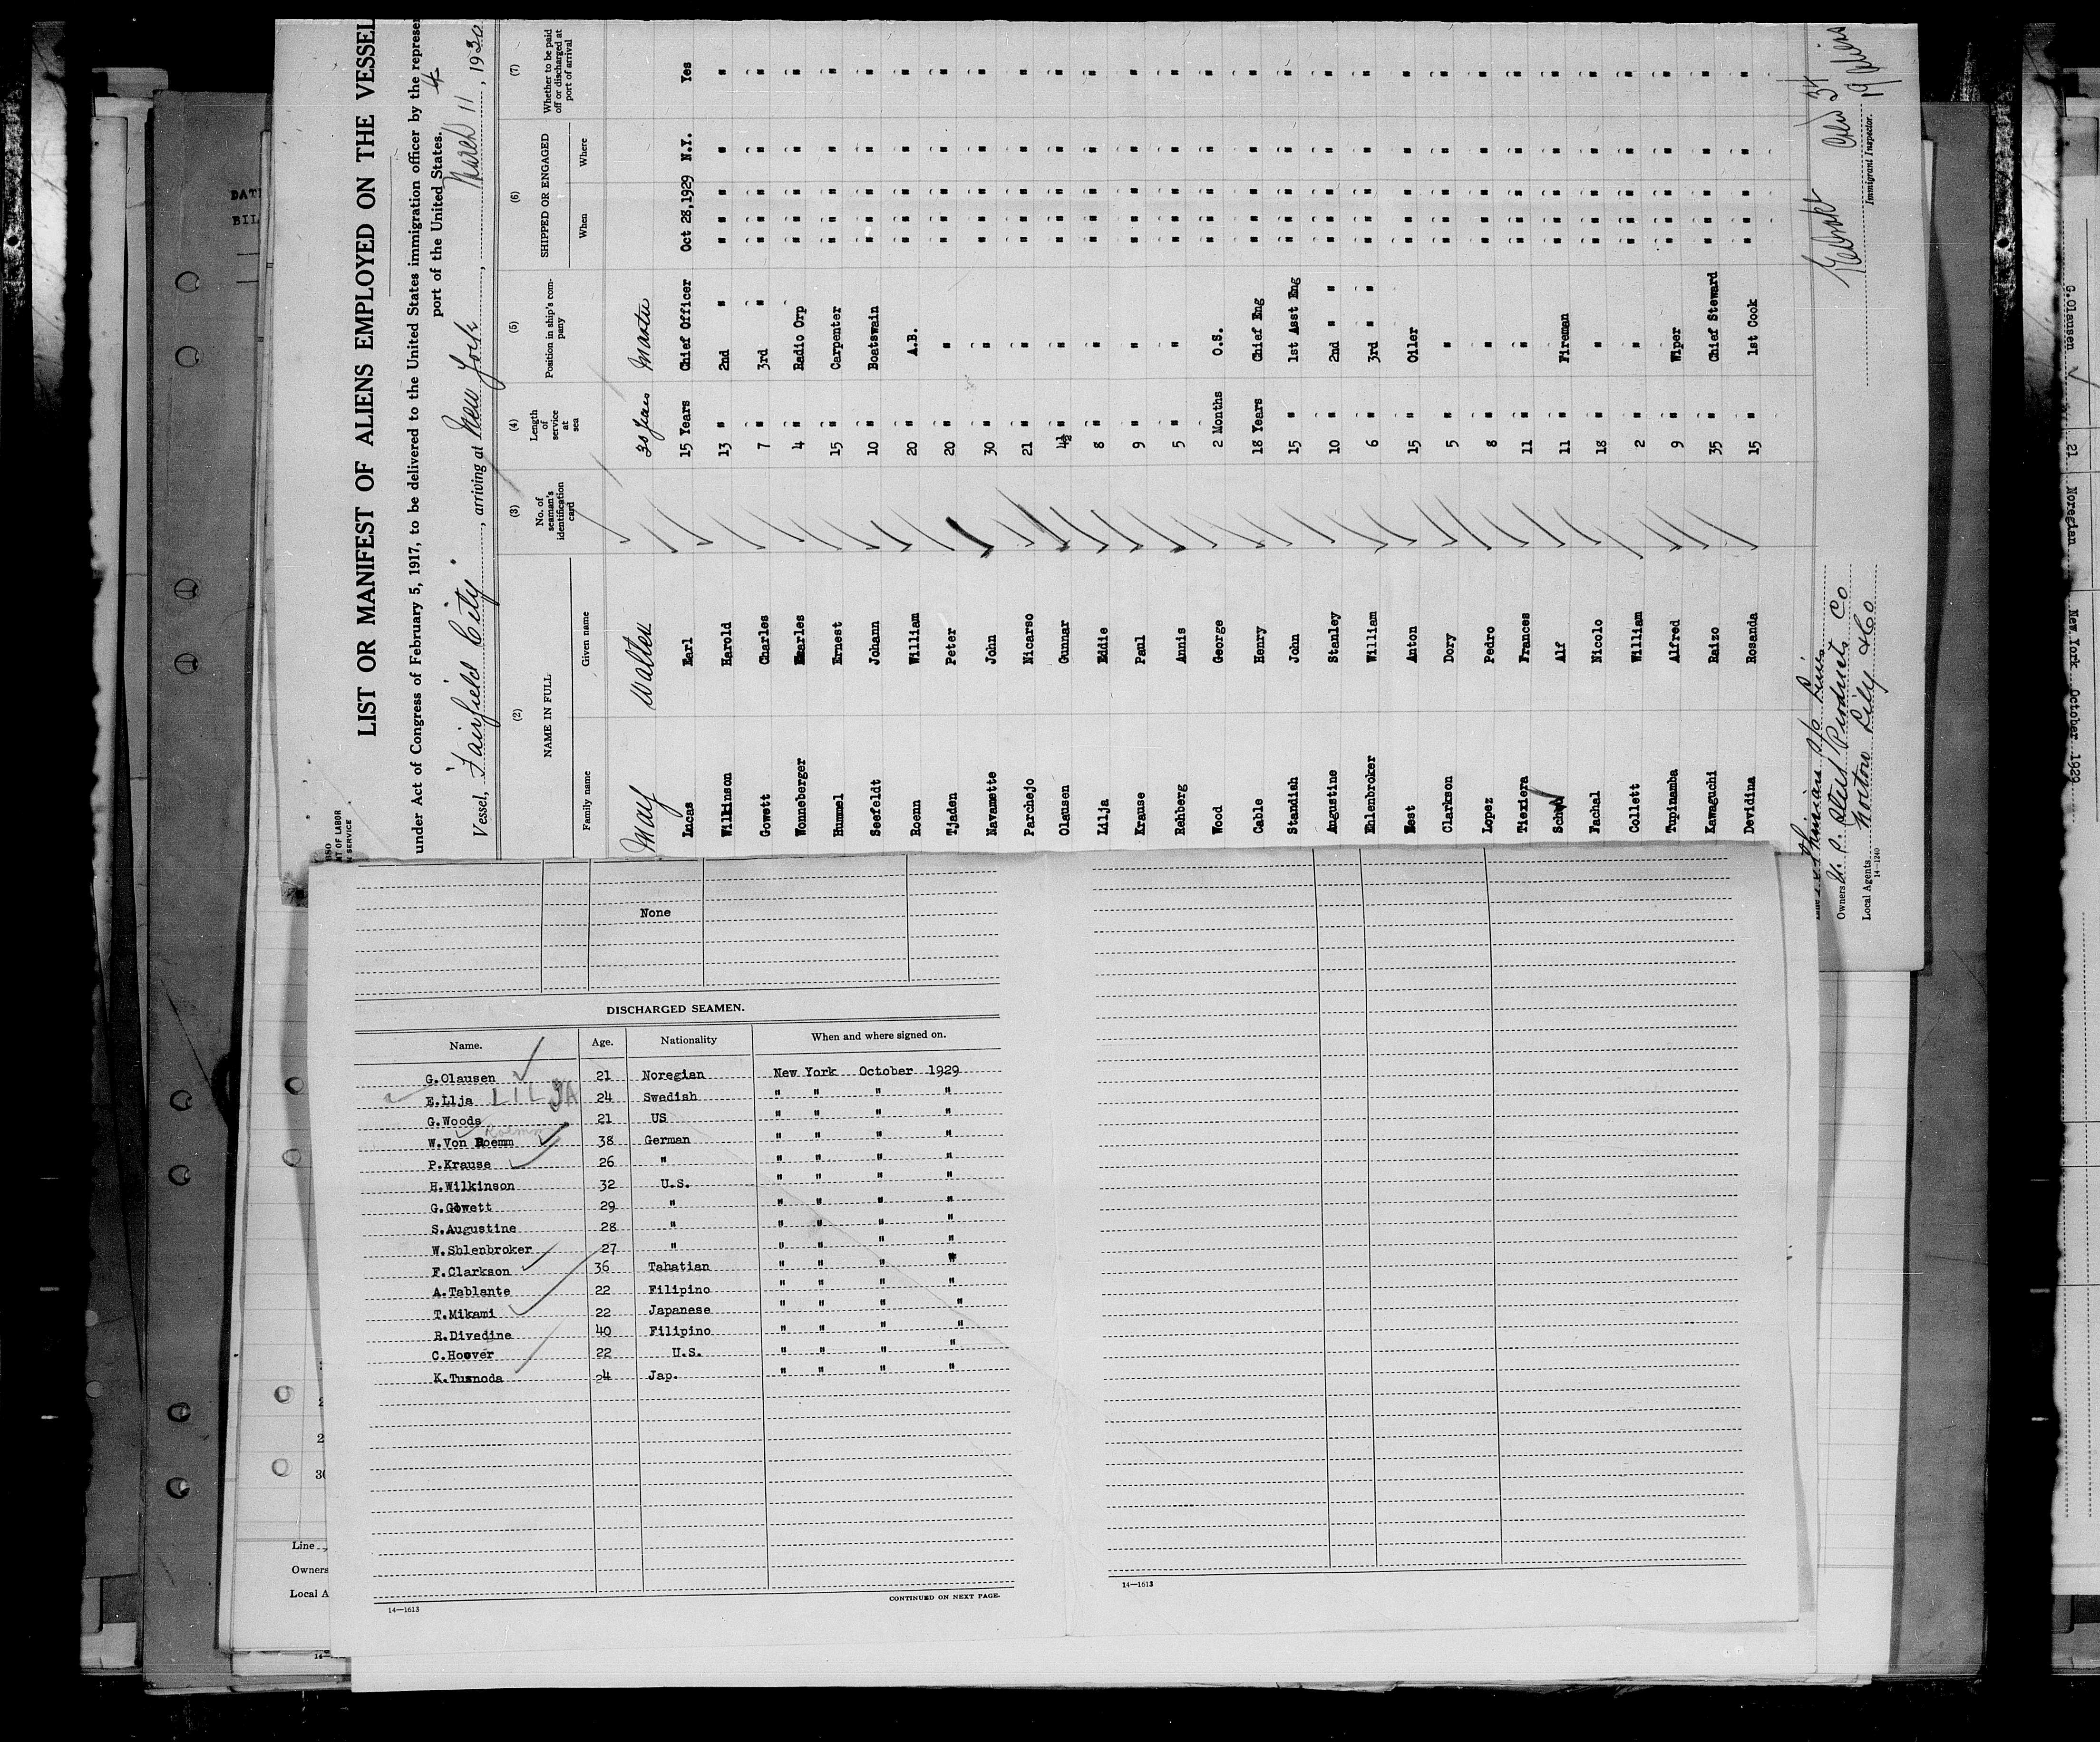 LIST OR MANIFEST OF ALIENS EMPLOYED ON THE VESSEL
under Act of Congress of February 5, 1917, to be delivered to the United States immigration officer by the represen
port of the United States.
Vessel, "Fairfield City", arriving at New York, March 11, 1930
(2) (3) (4) (5) (6) (7)
NAME IN FULL No. of seaman's identification card Length of service at sea Position in ship's company SHIPPED OR ENGAGED Whether to be paid off or discharged at port of arrival
Family name Given name When Where
May Walter 30 years Master
Lucas Earl 15 Years Chief Officer Oct 28,1929 N.Y. Yes
Wilkinson Harold 13 " 2nd " " " " " "
Gowett Charles 7 " 3rd " " " " " "
Wonneberger Charles 4 " Radio Orp " " " " "
Hummel Ernest 15 " Carpenter " " " " "
Seefeldt Johann 10 " Boatswain " " " " "
Roenn William 20 " A.B. " " " " "
Tjaden Peter 20 " " " " " " "
Navamette John 30 " " " " " " "
Parchejo Nicarso 21 " " " " " " "
Olausen Gunnar 4½ " " " " " " "
Lilja Eddie 8 " " " " " " "
Krause Paul 9 " " " " " " "
Rehberg Annis 5 " " " " " " "
Wood George 2 Months O.S. " " " " "
Cable Henry 18 Years Chief Eng " " " " "
Standish John 15 " 1st Asst Eng " " " " "
Augustine Stanley 10 " 2nd " " " " " " "
Ehlenbroker William 6 " 3rd " " " " " " "
Nest Anton 15 " Oiler " " " " "
Clarkson Dory 5 " " " " " " "
Lopez Pedro 8 " " " " " " "
Tiexiera Frances 11 " " " " " " "
Alf 11 " Fireman " " " " "
Fachal Nicolo 18 " " " " " " "
Collett William 2 " " " " " " "
Tupinamba Alfred 9 " Wiper " " " " "
Kawaguchi Raizo 35 " Chief Steward " " " " "
Devidina Rosanda 15 " 1st Cook " " " " "
Owners U. S. Steel Products Co
Local Agents Norton Lilly & Co
14-1240
Immigrant Inspector.
Crew 34
19 Aliens
None
DISCHARGED SEAMEN.
Name. Age. Nationality When and where signed on.
G.Olausen 21 Noregian New York October 1929
E.Llja LILJA 24 Swedish " " " "
G.Woods 21 US " " " "
W.Von Roemm Roemm 38 German " " " "
P.Krause 26 " " " " "
H.Wilkinson 32 U.S. " " " "
G.Gowett 29 " " " " "
S.Augustine 28 " " " " "
W.Shlenbroker 27 " " " " "
F.Clarkson 36 Tahatian " " " "
A.Tablante 22 Filipino " " " "
T.Mikami 22 Japanese " " " "
R.Divedine 40 Filipino " " " "
C.Hoover 22 U.S. " " " "
K.Tusnoda 24 Jap. " " " "
14—1613
CONTINUED ON NEXT PAGE.
14—1613
Line
Owners
Local A
30
G.Olausen 21 Noregian New York October 1929